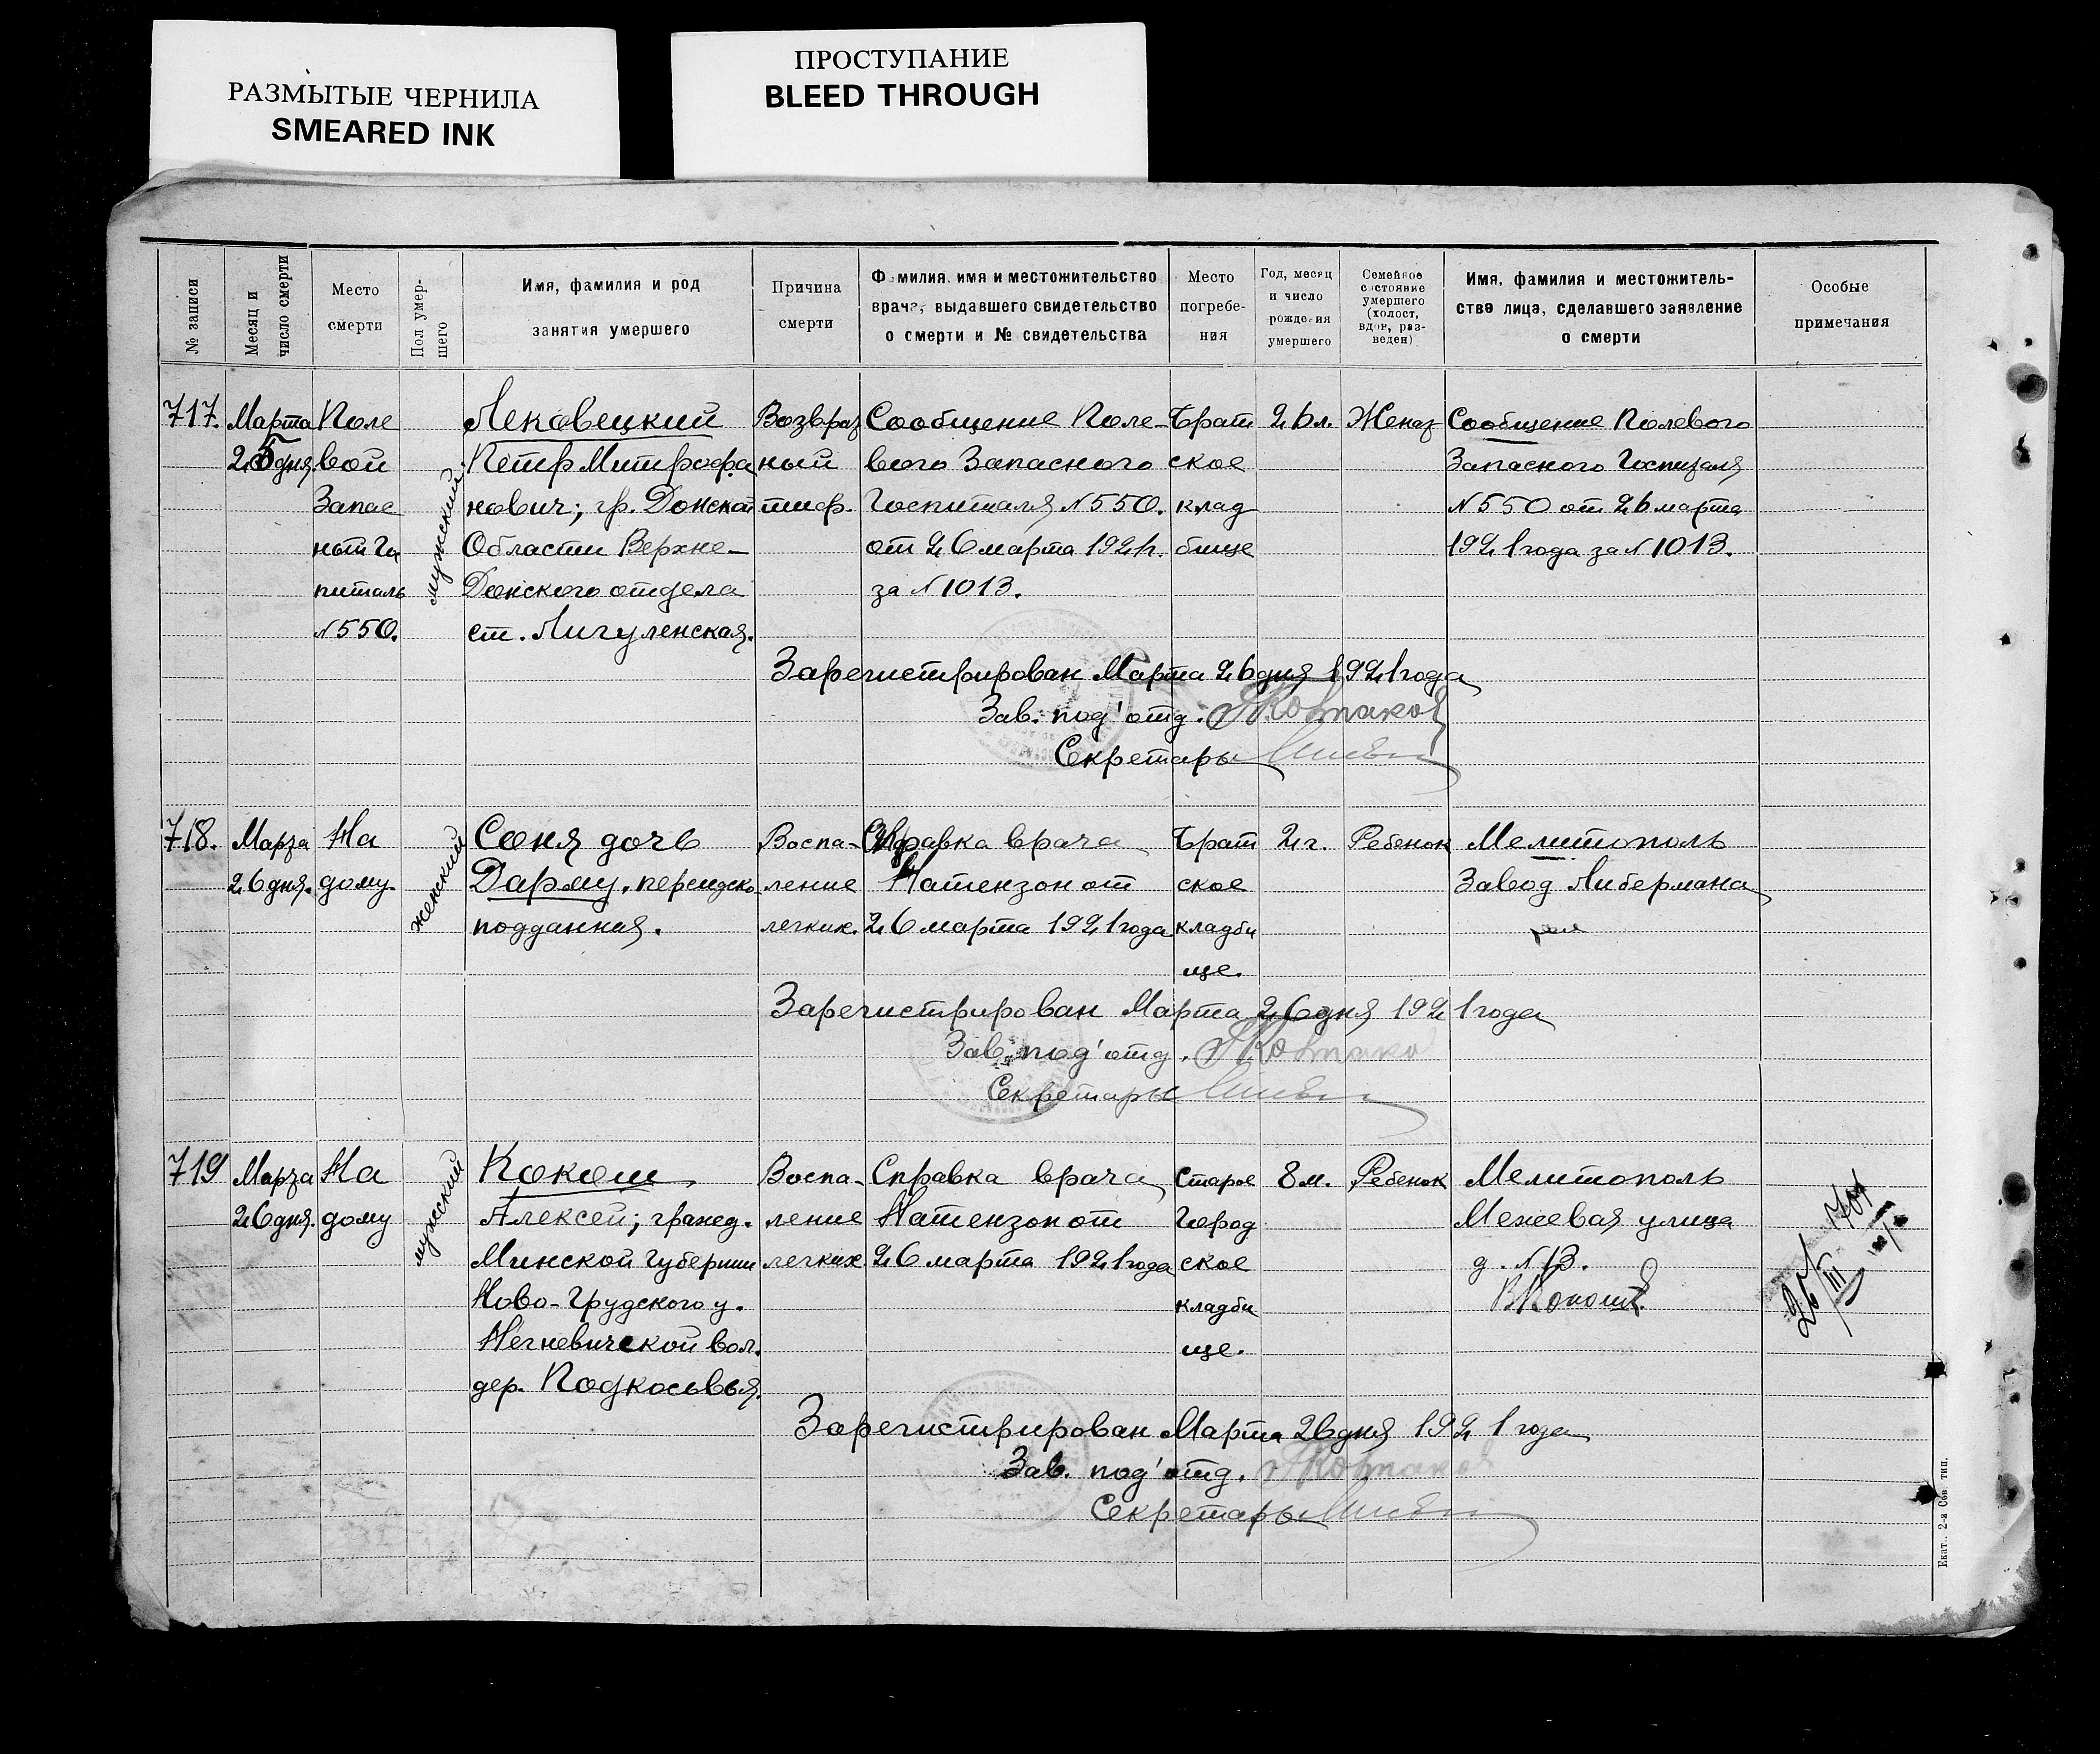 РАЗМЫТЫЕ ЧЕРНИЛА
SMEARED INK
ПРОСТУПАНИЕ
BLEED THROUGH
№ записи
Месяц и
число смерти
Место
смерти
Пол умер-
шего
Имя, фамилия и род
занятия умершего
Причина
смерти
Фамилия, имя и местожительство
врача, выдавшего свидетельство
о смерти и № свидетельства
Место
погребе-
ния
Год, месяц
и число
рождения
умершего
Семейное
состояние
умершего
(холост,
вдов, раз-
веден)
Имя, фамилия и местожитель-
ство лица, сделавшего заявление
о смерти
Особые
примечания
717.
Марта
25 дня
Поле
вой
Запас
ный Го
питаль
№550.
мужский
Лековецкий
Петр Митрофа
нович; гр. Донской
Области Верхне-
Донского отдела
ст. Лигуленская.
Возвраз
ный
тиф.
Сообщение Поле-
вого Запасного
Госпиталя №550.
от 26 марта 1921г.
за №1013.
Брат
ское
клад
бище
26л.
Женат
Сообщение Полевого
Запасного Госпиталя
№550 от 26 марта
1921 года за №1013.
Зарегистрирован Марта 26 дня 1921 года
Зав. под'отд.
Секретарь
718.
Марта
26 дня.
На
дому
женский
Соня дочь
Дарму, персидско
подданная.
Воспа-
ление
легких.
Справка врача
Натензон от
26 марта 1921 года
Брат
ское
кладби
ще.
2 г.
Ребенок
Мелитополь
Завод Либермана
Зарегистрирован Марта 26 дня 1921 года
Зав. под'отд.
Секретарь
719
Марта
26 дня.
На
дому
мужский
Кокош
Алексей; гражд.
Минской Губернии
Ново-Грудского у.
Негневичской вол.
дер. Подкосовья.
Воспа-
ление
легких
Справка врача
Натензон от
26 марта 1921 года
Старое
Город
ское
кладби
ще.
8 м.
Ребенок
Мелитополь
Межевая улица
д. №13.
В Кокош
26/III
Зарегистрирован Марта 26 дня 1921 года
Зав. под'отд.
Секретарь
Екат., 2-а Сов. тип.